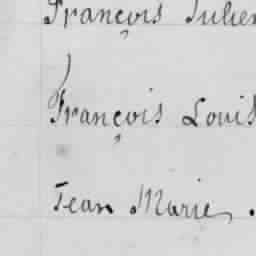 François Julien
François Louis
Jean Marie.